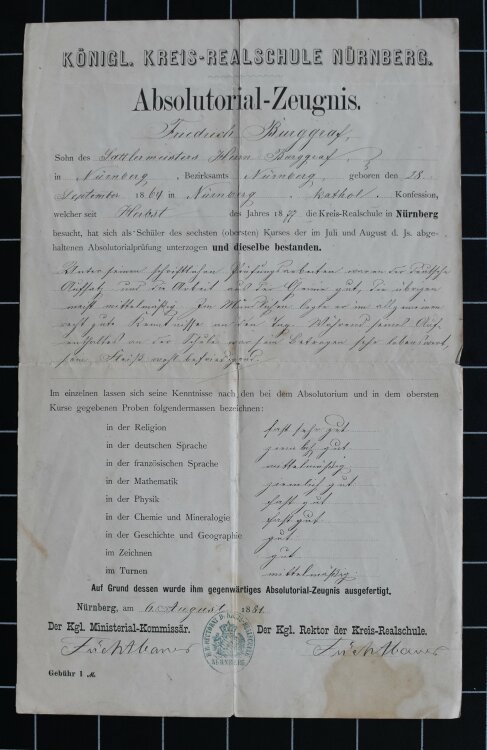 KÖNIGL. KREIS-REALSCHULE NÜRNBERG.
Absolutorial-Zeugnis.
Friedrich Burggraf,
Sohn des Sattlermeisters Herrn Burggraf,
in Nürnberg, Bezirksamts Nürnberg, geboren den 28.
September 1864 in Nürnberg, kathol. Konfession,
welcher seit Herbst des Jahres 1877 die Kreis-Realschule in Nürnberg
besucht, hat sich als Schüler des sechsten (obersten) Kurses der im Juli und August d. Js. abge-
haltenen Absolutorialprüfung unterzogen und dieselbe bestanden.
Unter seinen schriftlichen Prüfungsarbeiten waren der deutsche
Aufsatz und die Arbeit aus der Chemie gut, die übrigen
meist mittelmäßig. Im Mündlichen legte er im allgemeinen
recht gute Kenntnisse an den Tag. Während seines Auf-
enthaltes an der Schule war sein Betragen sehr lobenswert,
sein Fleiß wohl befriedigend.
Im einzelnen lassen sich seine Kenntnisse nach den bei dem Absolutorium und in dem obersten
Kurse gegebenen Proben folgendermassen bezeichnen:
in der Religion fast sehr gut
in der deutschen Sprache ziemlich gut
in der französischen Sprache mittelmäßig
in der Mathematik ziemlich gut
in der Physik fast gut
in der Chemie und Mineralogie fast gut
in der Geschichte und Geographie gut
im Zeichnen gut
im Turnen mittelmäßig
Auf Grund dessen wurde ihm gegenwärtiges Absolutorial-Zeugnis ausgefertigt.
Nürnberg, am 6. August 1881
Der Kgl. Ministerial-Kommissär. Der Kgl. Rektor der Kreis-Realschule.
Füchtbauer Füchtbauer
NÜRNBERG
Gebühr 1 M.